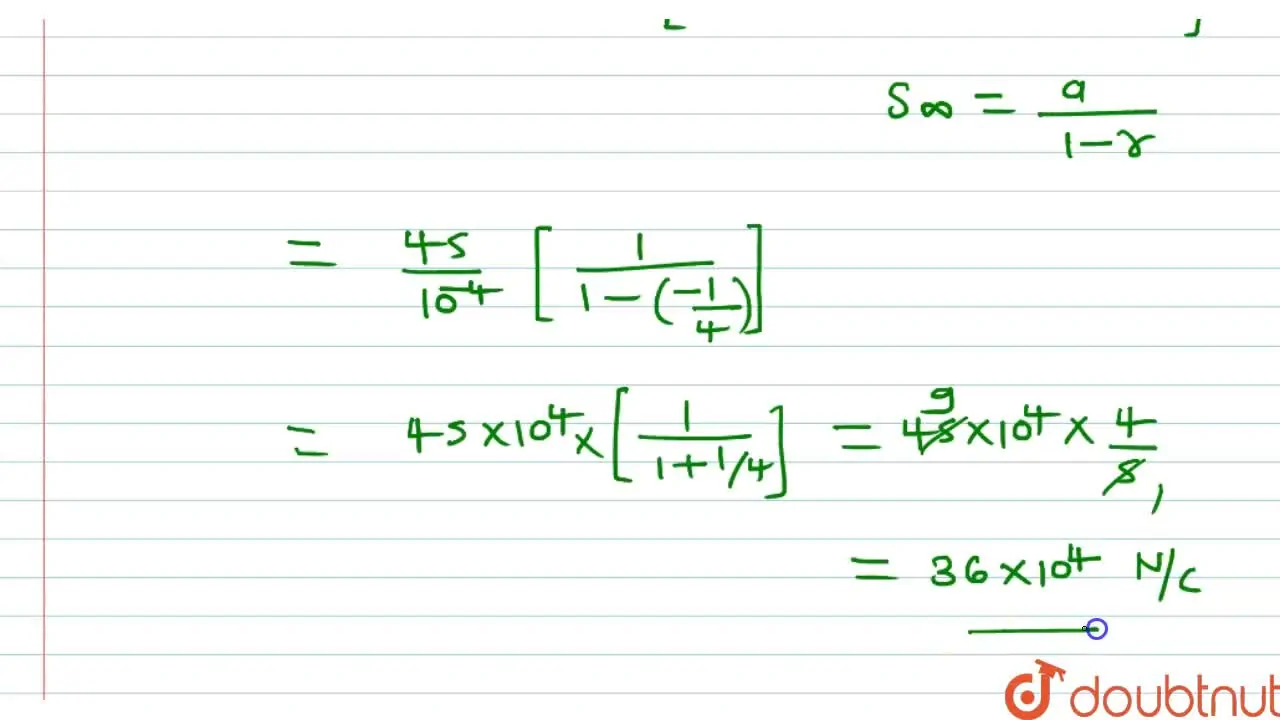 S∞ = a/(1-r)
= 45/10⁻⁴ [1/(1-(-1/4))]
= 45×10⁴× [1/(1+1/4)] = 45 9 ×10⁴ × 4/5 1
= 36×10⁴ N/C
doubtnut